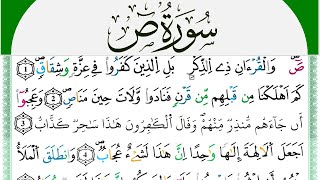 سُورَةُ ص
صٓ ۚ وَالْقُرْءَانِ ذِي الذِّكْرِ ۝١ بَلِ الَّذِينَ كَفَرُوا فِي عِزَّةٍ وَشِقَاقٍ
كَمْ أَهْلَكْنَا مِن قَبْلِهِم مِّن قَرْنٍ فَنَادَوا وَّلَاتَ حِينَ مَنَاصٍ ۝٣ وَعَجِبُوا
أَن جَاءَهُم مُّنذِرٌ مِّنْهُمْ ۖ وَقَالَ الْكَافِرُونَ هَٰذَا سَاحِرٌ كَذَّابٌ
أَجَعَلَ الْآلِهَةَ إِلَٰهًا وَاحِدًا ۖ إِنَّ هَٰذَا لَشَيْءٌ عُجَابٌ ۝٥ وَانطَلَقَ الْمَلَأُ